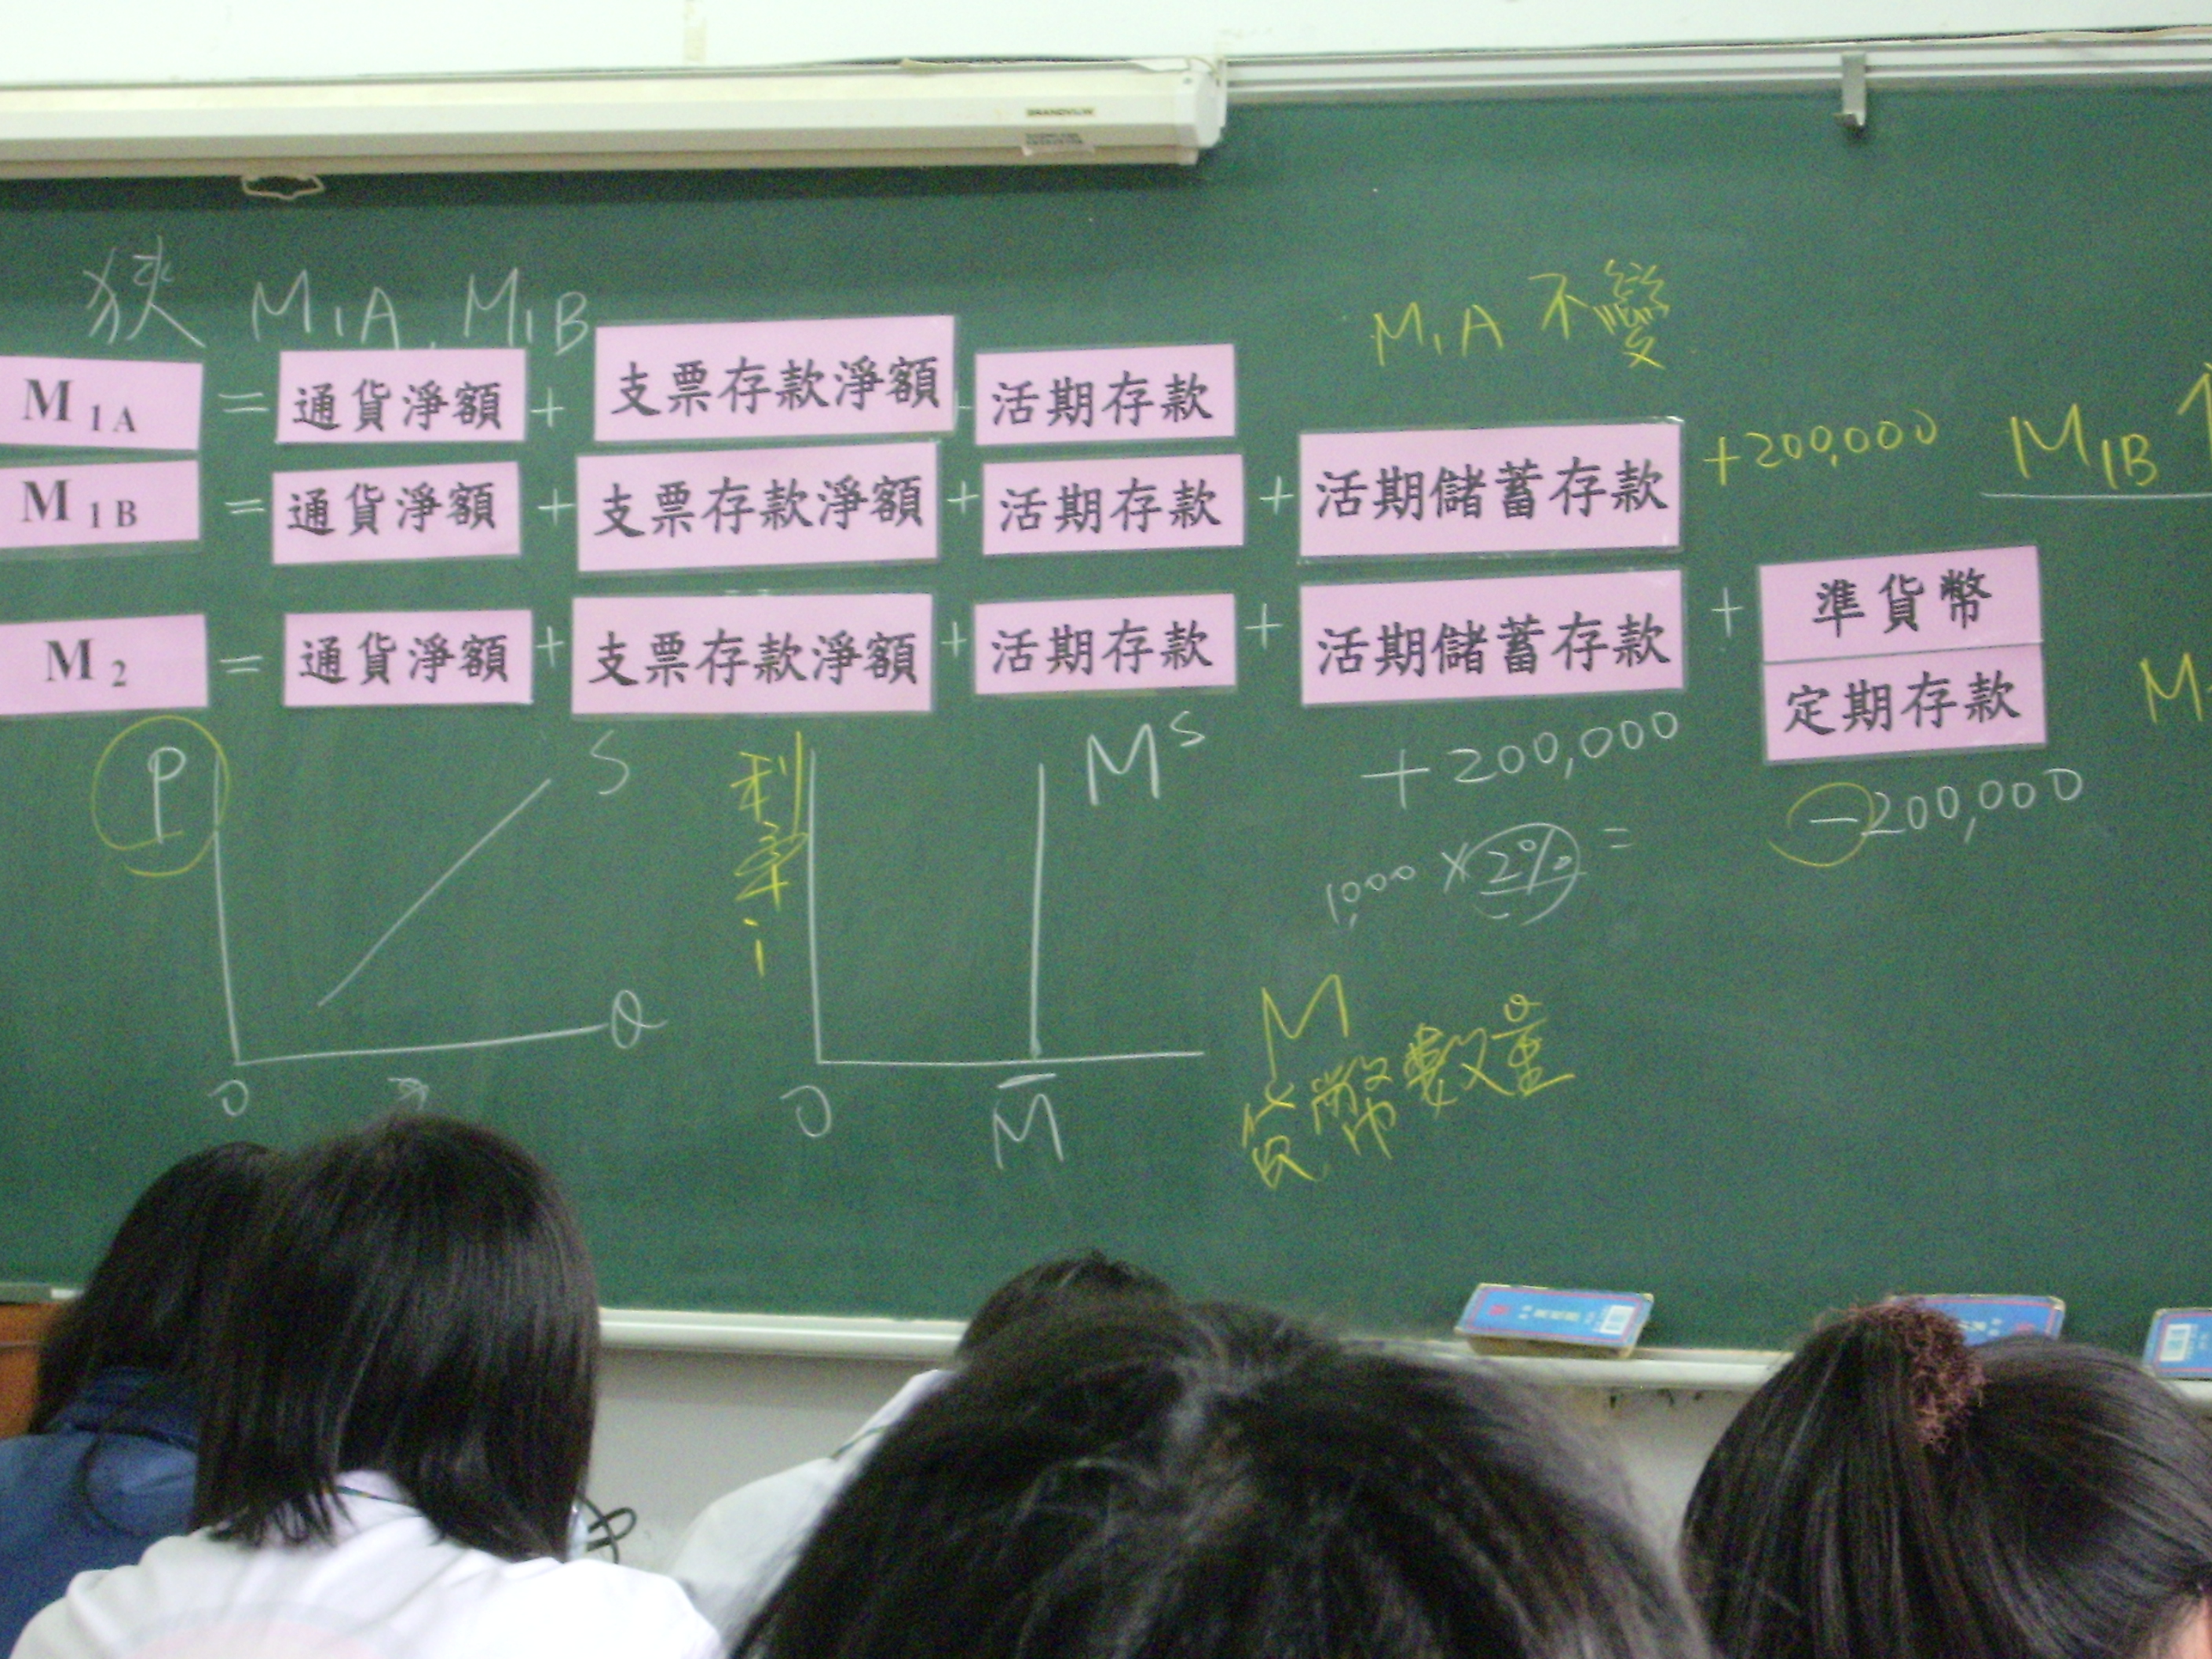 狹 M1A、M1B
M1A 不變
M1A = 通貨淨額 + 支票存款淨額 活期存款
M1B = 通貨淨額 + 支票存款淨額 + 活期存款 + 活期儲蓄存款 +200,000 M1B ↑
M2 = 通貨淨額 + 支票存款淨額 + 活期存款 + 活期儲蓄存款 + 準貨幣
定期存款
M
+200,000
-200,000
P
S
Q
0
利率 i
MS
0
M̅
1,000 × 2% =
M
貨幣數量